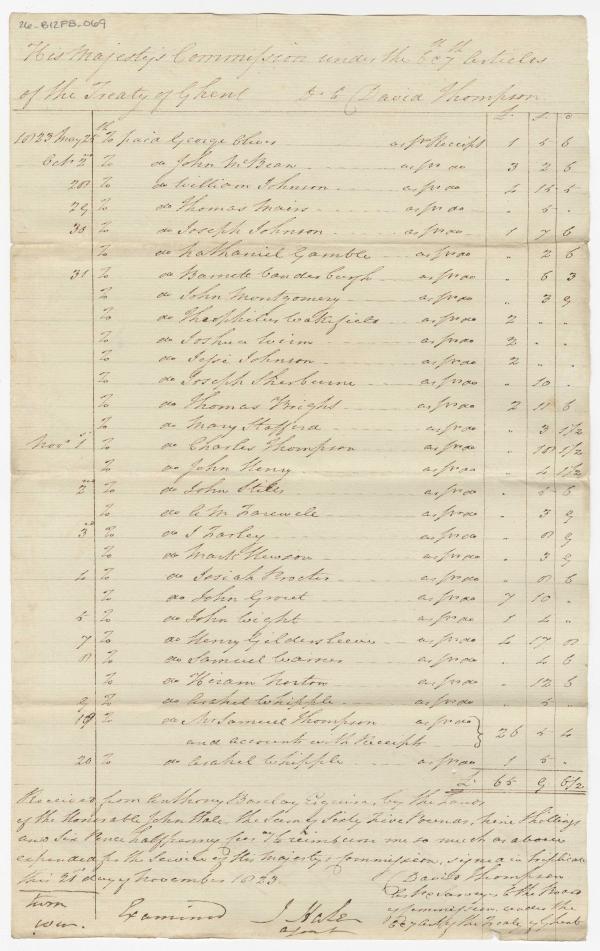 26-B12FB-069
His Majesty's Commission under the 6th & 7th Articles
of the Treaty of Ghent Dr to David Thompson
£ s d
1823 May 25th To paid George Clews as pr Receipt 1 5 6
Octr 2nd To do John McBean as pr do 3 2 6
28 To do William Johnson as pr do 4 15 5
29 To do Thomas Mairs as pr do " 5 "
30 To do Joseph Johnson as pr do 1 7 6
To do Nathaniel Gamble as pr do " 2 6
31 To do Barnet Vanderburgh as pr do " 6 3
To do John Montgomery as pr do " 3 9
To do Theophilus Wakefield as pr do 2 " "
To do Joshua as pr do 2 " "
To do Jesse Johnson as pr do 2 " "
To do Joseph Sherburne as pr do " 10 "
To do Thomas Bright as pr do 2 11 6
To do Mary Stafford as pr do " 3 1½
Novr 1st To do Charles Thompson as pr do " 18 1½
To do John Henry as pr do " 4 1½
2nd To do John Stiles as pr do " 5 6
To do A M Farewell as pr do " 3 9
3rd To do J Farley as pr do " 8 9
To do Mark Hewson as pr do " 3 9
4 To do Josiah Procter as pr do " 8 6
To do John Grout as pr do 7 10 "
5 To do John Wight as pr do 1 4 "
7 To do Henry Gildersleeve as pr do 4 17 8
8 To do Samuel Warner as pr do " 4 6
To do Hiram Norton as pr do " 12 6
9 To do Asahel Whipple as pr do " 5 "
19 To do Mr Samuel Thompson as pr do
and accounts with Receipts 26 5 4
20 To do Asahel Whipple as pr do 1 5 "
£ 65 9 6½
Received from Anthony Barclay Esquire, by the hands
of the Honorable John Hale, the Sum of Sixty Five Pounds, nine Shillings
and Six Pence halfpenny for to reimburse me so much as above
expended for the Service of His Majesty's Commission, signed in triplicate
this 21st day of November 1823
David Thompson
Astr & Surveyor to the Board
of Commission under the
6 & 7 Arts of the Treaty of Ghent
Turn
over
Examined J Hale
agent